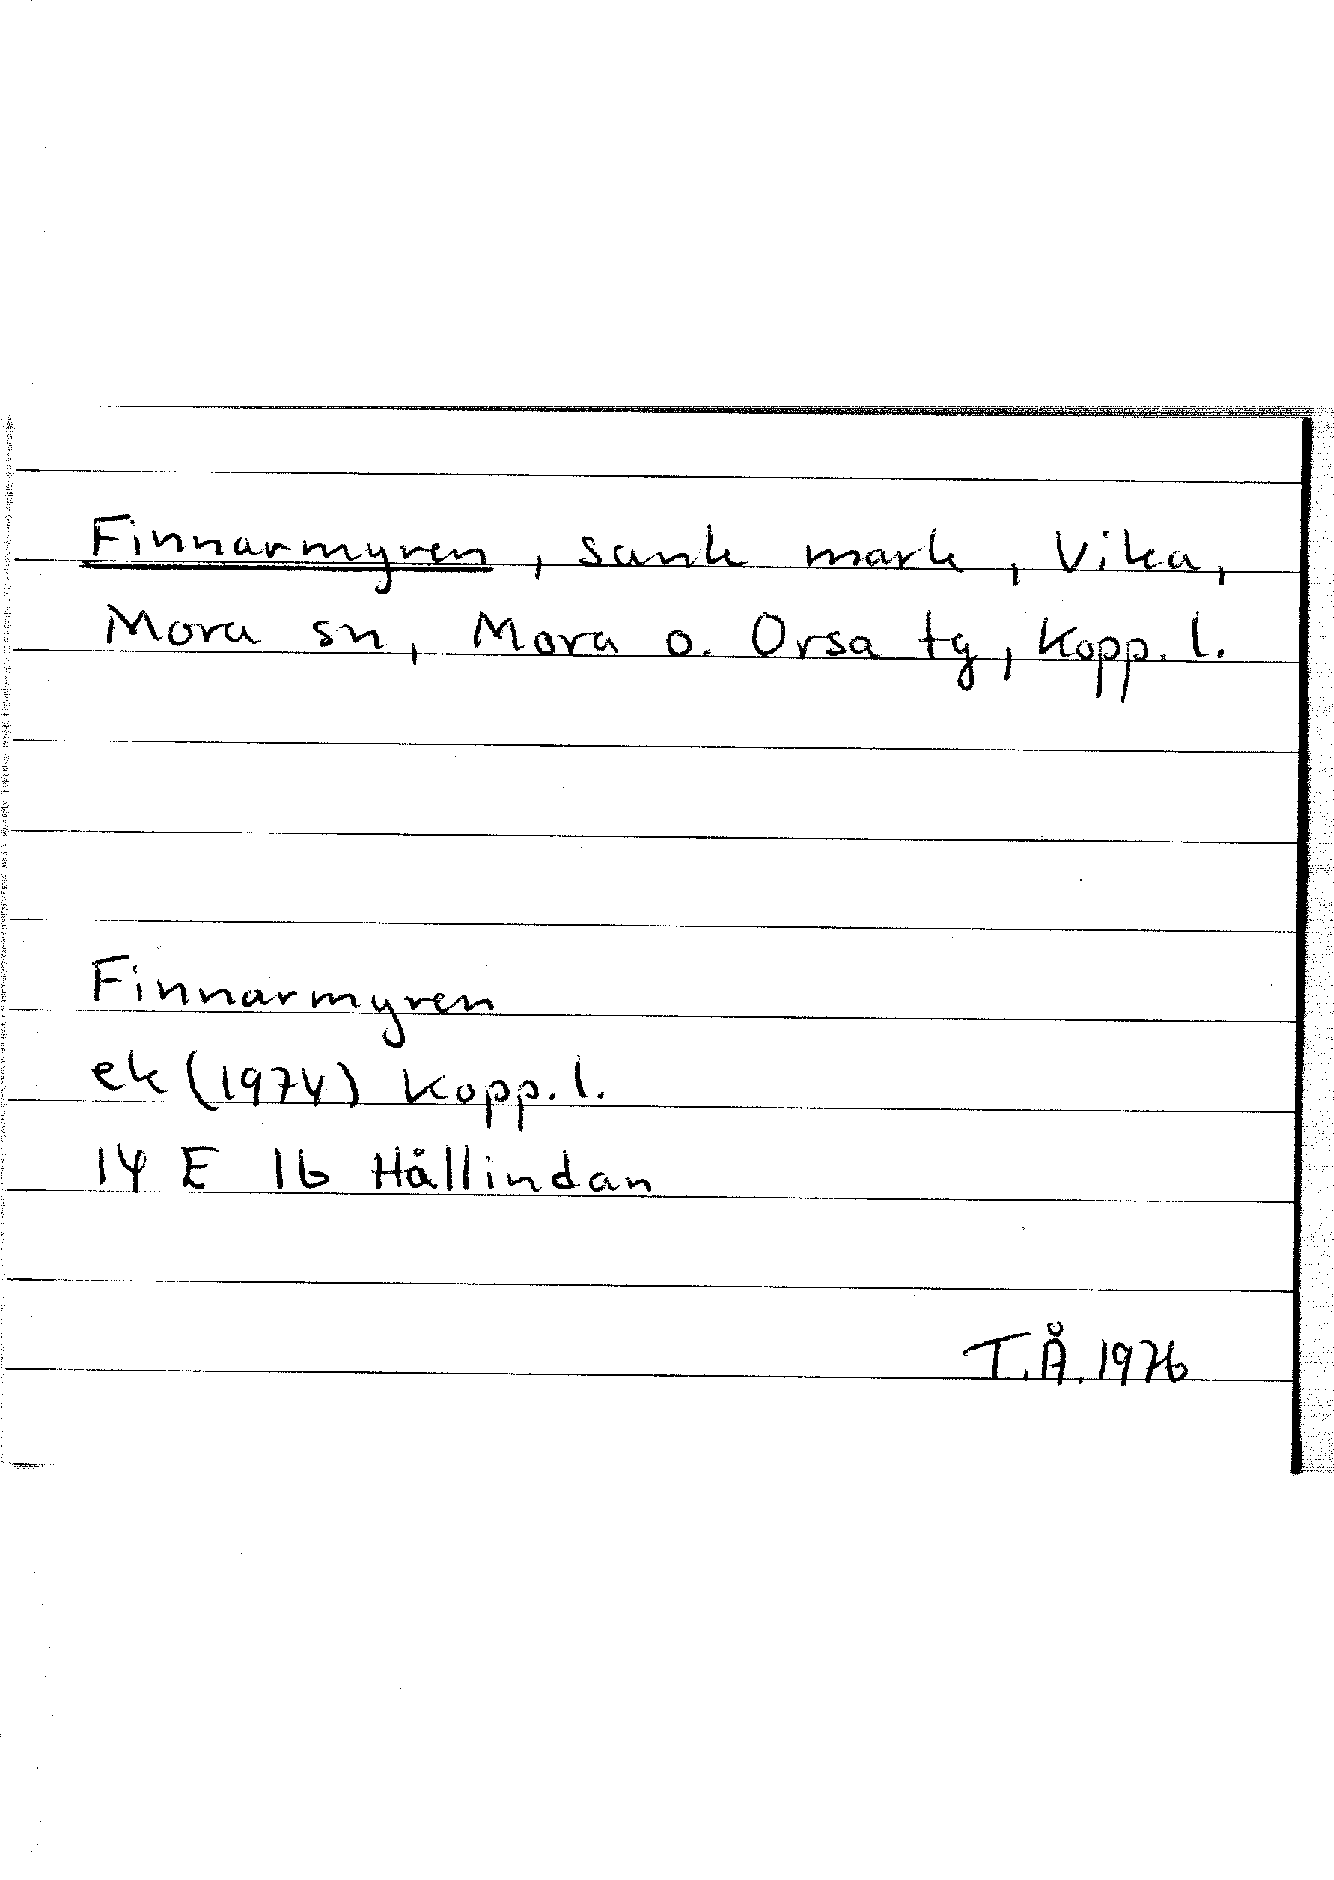 Finnarmyren, sank mark, Vika,
Mora sn, Mora o. Orsa tg, Kopp. l.
Finnarmyren
ek (1974) Kopp. l.
14 E 1b Hållindan
T.Å. 1976